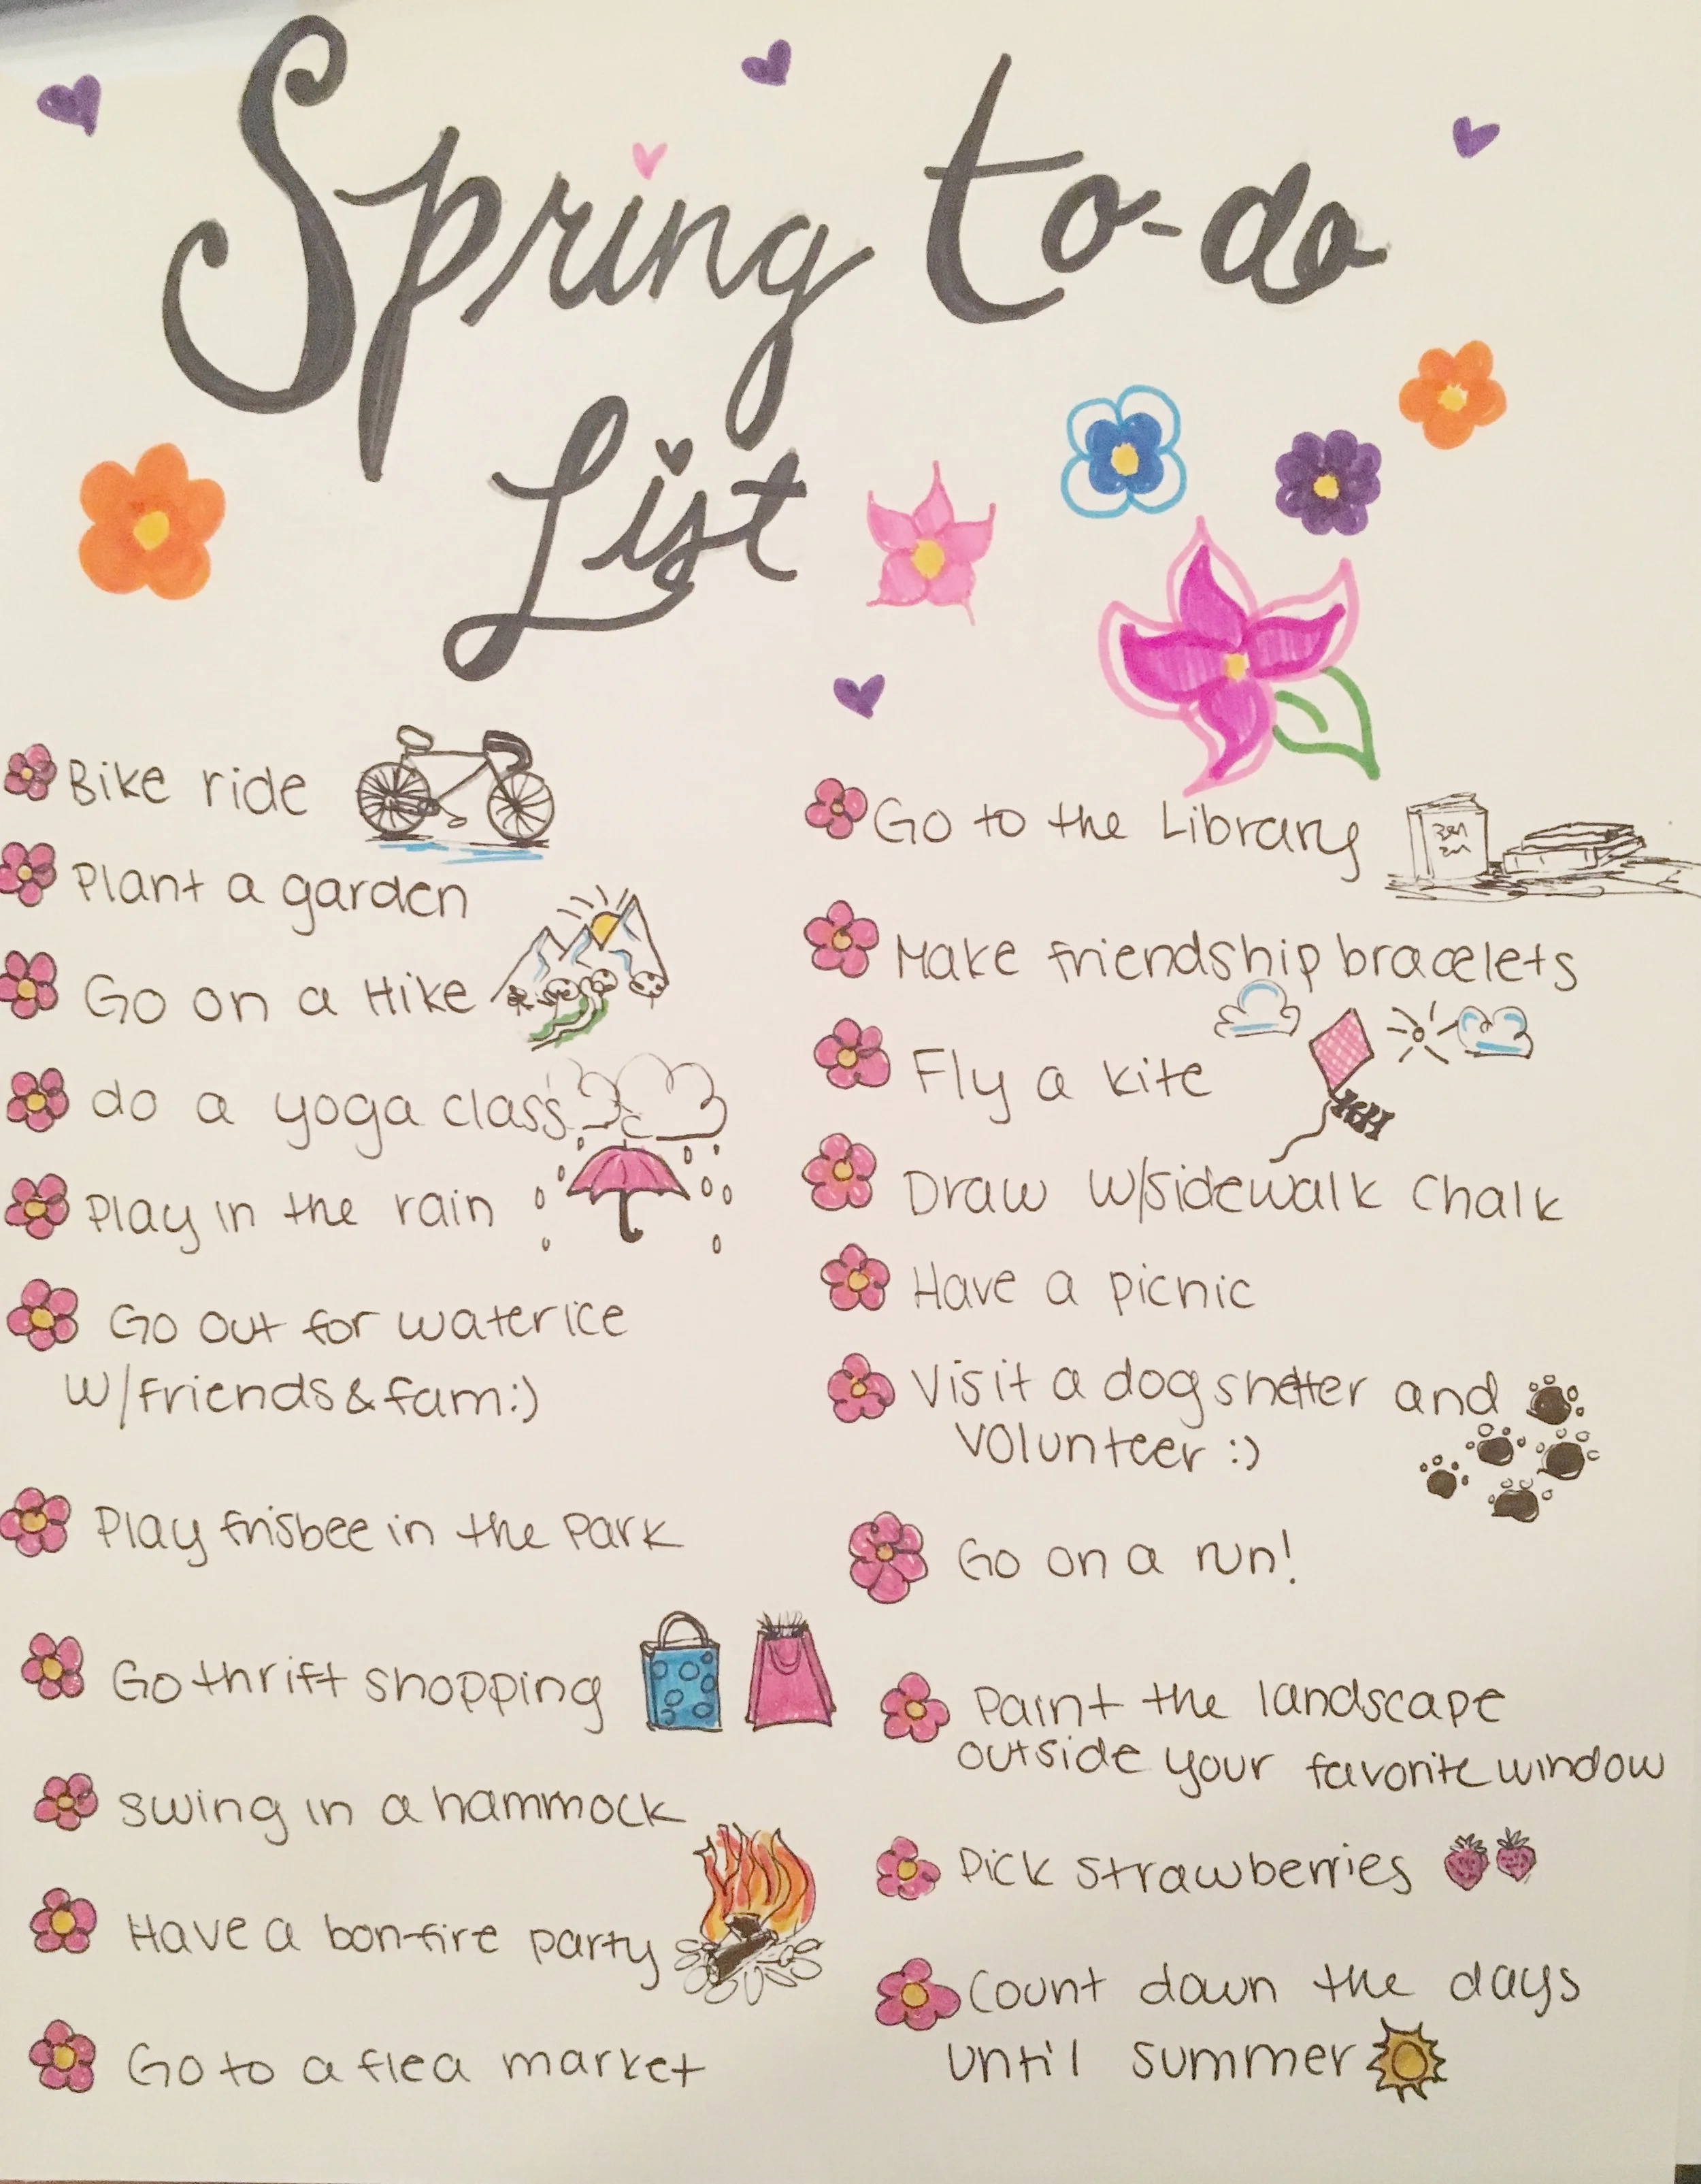 Spring to-do
List
Bike ride
Plant a garden
Go on a Hike
do a yoga class
Play in the rain
Go out for water ice
w/friends & fam:)
Play frisbee in the Park
Go thrift shopping
swing in a hammock
Have a bon-fire party
Go to a flea market
Go to the Library
Make friendship bracelets
Fly a kite
Draw w/sidewalk chalk
Have a picnic
Visit a dog shelter and
volunteer :)
Go on a run!
Paint the landscape
outside your favorite window
Pick strawberries
Count down the days
until summer